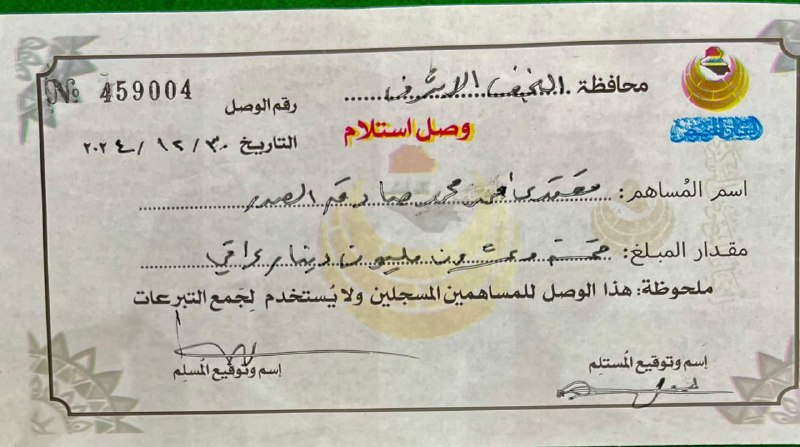 محافظة النجف الاشرف
№ 459004
رقم الوصل
وصل استلام
التاريخ ٣٠/ ١٢/ ٢٠٢٤
اسم المُساهم: مقتدى محمد صادق الصدر
مقدار المبلغ: خمسة وعشرون مليون دينار عراقي
ملحوظة: هذا الوصل للمساهمين المسجلين ولا يُستخدم لِجَمع التبرعات
إسم وتوقيع المُستلم
إسم وتوقيع المُسلِم